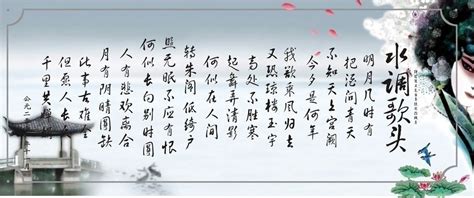 水调歌头
明月几时有
把酒问青天
不知天上宫阙
今夕是何年
我欲乘风归去
又恐琼楼玉宇
高处不胜寒
起舞弄清影
何似在人间
转朱阁低绮户
照无眠不应有恨
何似长向别时圆
人有悲欢离合
月有阴晴圆缺
此事古难全
但愿人长久
千里共